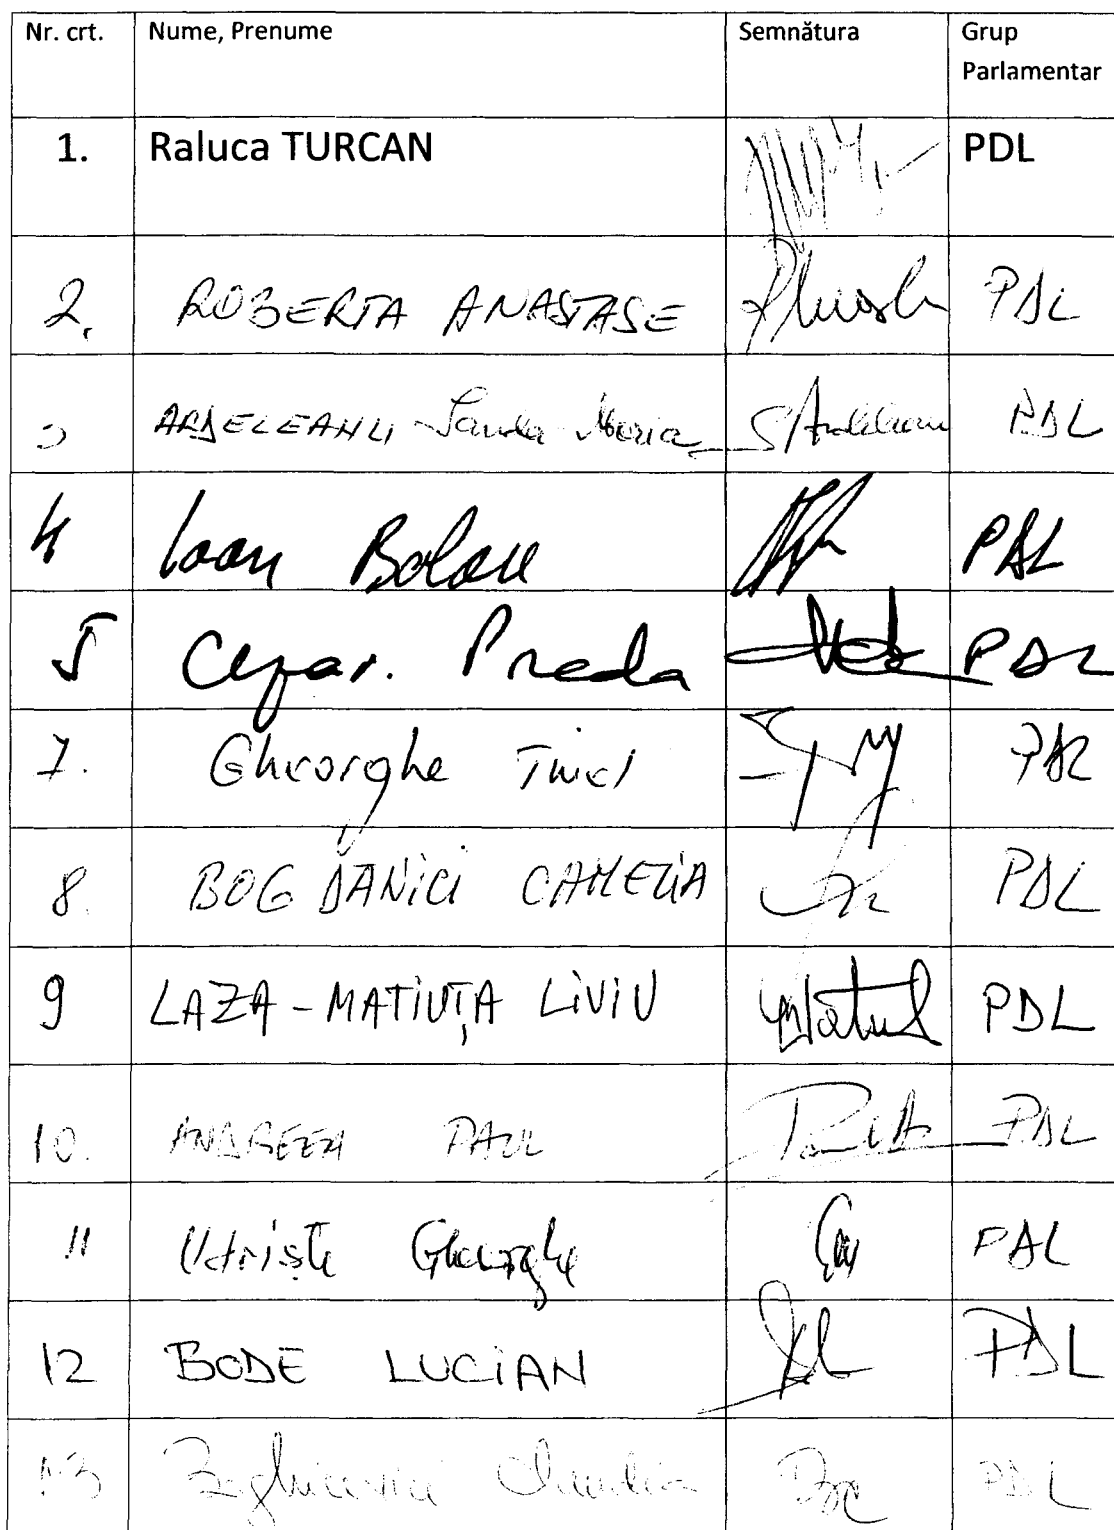 Nr. crt. Nume, Prenume Semnătura Grup
Parlamentar
1. Raluca TURCAN PDL
2. ROBERTA ANASTASE PDL
ARDELEANU Sanda Maria PDL
4 Ioan Bolan PDL
5 Cezar. Preda PDL
7. Gheorghe Tinel PDL
8. BOGDANICI CAMELIA PDL
9 LAZA-MATIUȚA LIVIU PDL
10. ANDREEA PAUL PDL
11 Udriște Gheorghe PDL
12 BODE LUCIAN PDL
13 PDL